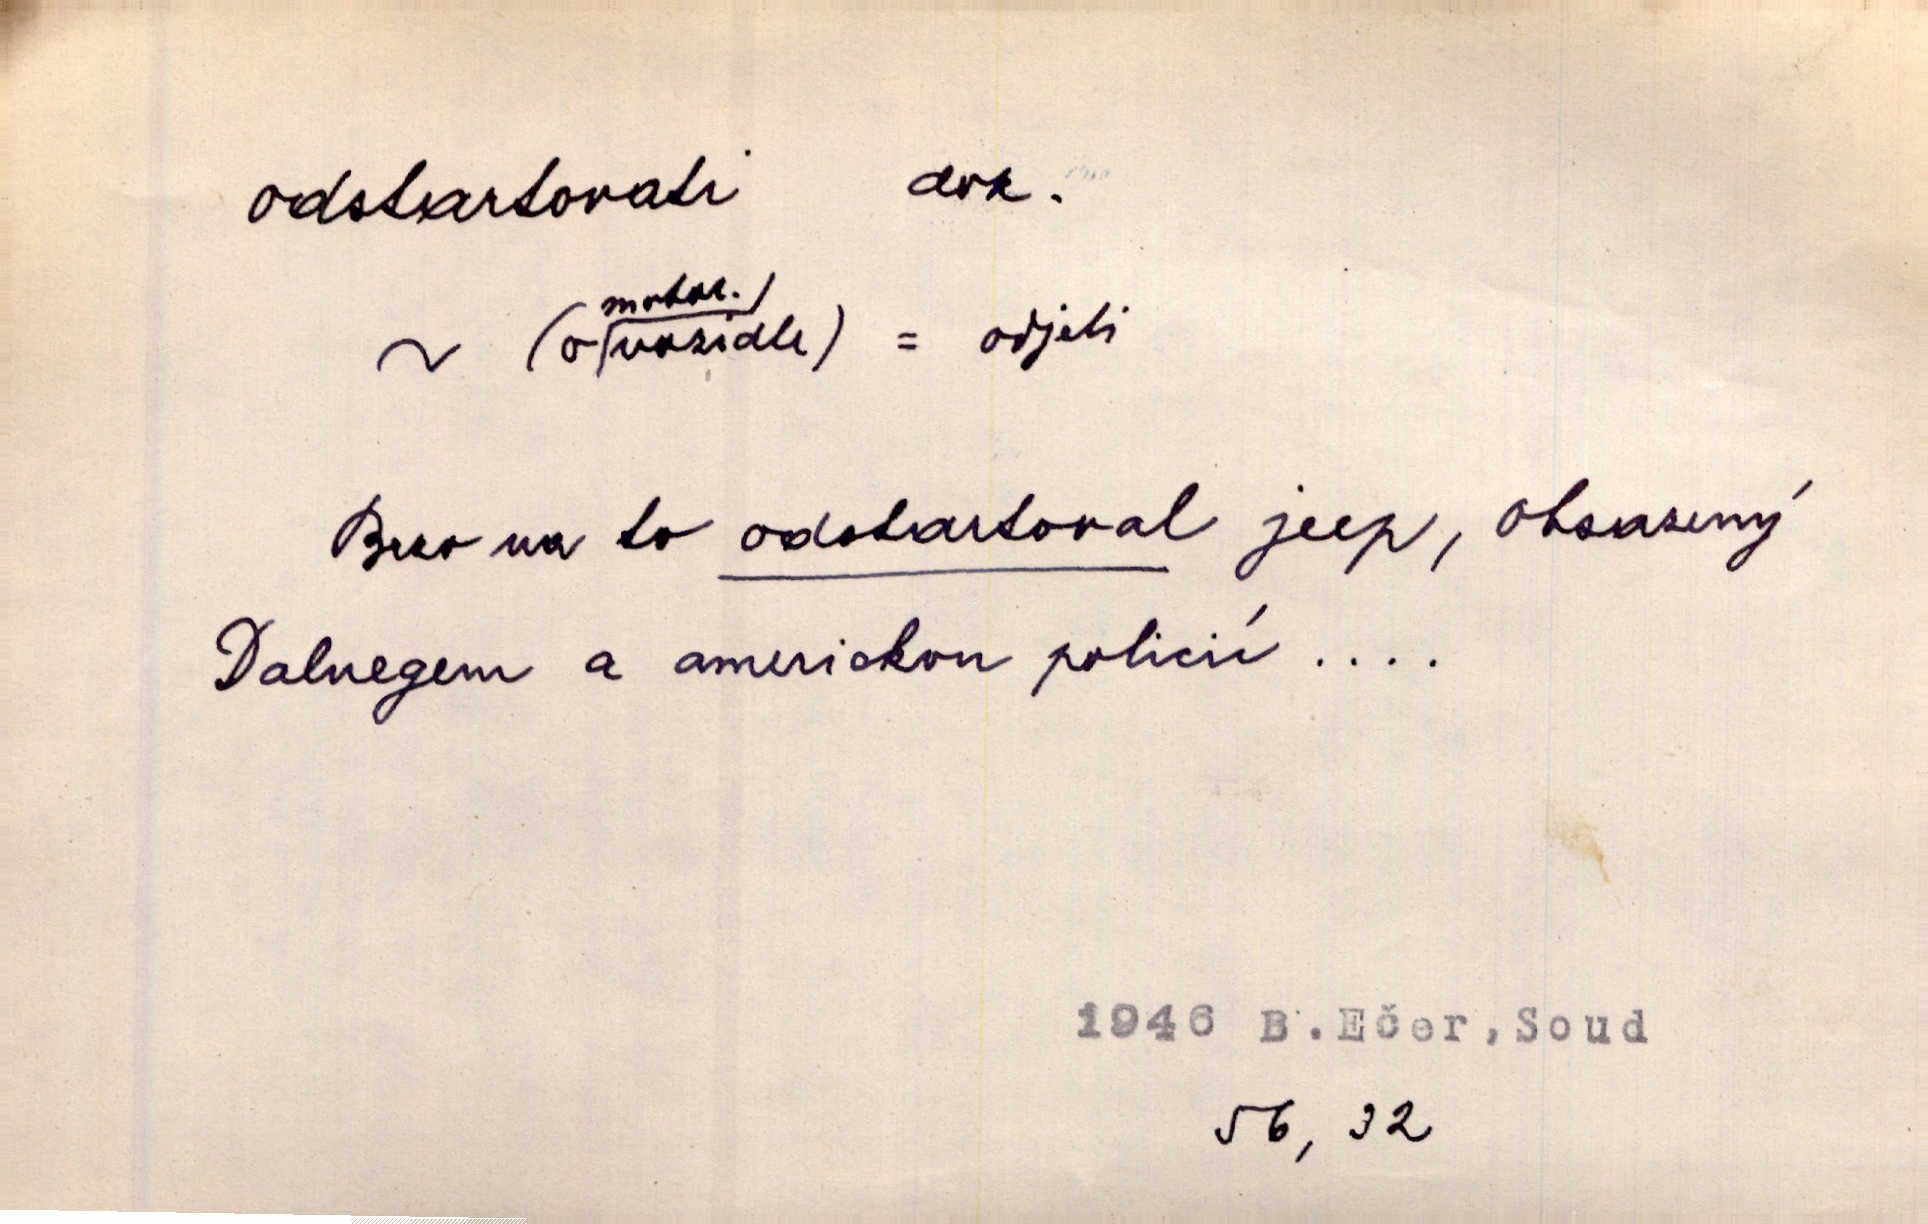 odstartovati dok.
~ (o motor. vozidle) = odjeti
Brzo na to odstartoval jeep, obsazený
Daluegem a americkou policií ....
1946 B.Ečer,Soud
56, 32